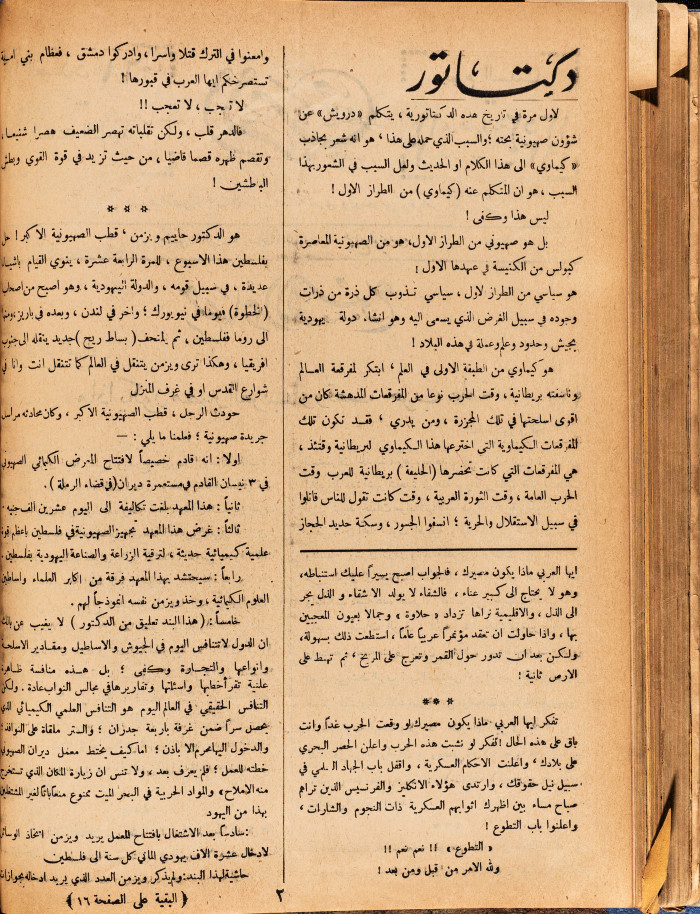 دكتاتور
لاول مرة في تاريخ هذه الدكتاتورية ، يتكلم «درويش» عن
شؤون صهيونية بحته ؛ والسبب الذي حمله على هذا ، هو انه شعر بجاذب
«كيماوي» الى هذا الكلام او الحديث ولعل السبب في الشعور بهذا
السبب ، هو ان المتكلم عنه (كيماوي) من الطراز الاول !
ليس هذا وكفى !
بل هو صهيوني من الطراز الاول، هو من الصهيونية المعاصرة
كبولس من الكنيسة في عهدها الاول !
هو سياسي من الطراز الاول ، سياسي تذوب كل ذرة من ذرات
وجوده في سبيل الغرض الذي يسعى اليه وهو انشاء دولة يهودية
بجيش وحدود وعلم وعملة في هذه البلاد !
هو كيماوي من الطبقة الاولى في العلم ، ابتكر لمفرقعة العالم
وناسفته بريطانية ، وقت الحرب نوعا من المفرقعات المدهشة كان من
اقوى اسلحتها في تلك المجزرة ، ومن يدري ؛ فقد تكون تلك
المفرقعات الكيماوية التي اخترعها هذا الكيماوي لبريطانية وقتئذ ،
هي المفرقعات التي كانت تحضرها (الحليفة) بريطانية للعرب وقت
الحرب العامة ، وقت الثورة العربية ، وقت كانت تقول للناس قاتلوا
في سبيل الاستقلال والحرية ؛ انسفوا الجسور ، وسكة حديد الحجاز
وامعنوا في الترك قتلا واسرا ، وادركوا دمشق ، فعظام بني امية
تستصرخكم ايها العرب في قبورها !
لا تعجب ، لا تعجب !!
فالدهر قلب ، ولكن تقلباته تهصر الضعيف هصرا شنيعا ،
وتقصم ظهره قصما قاضيا ، من حيث تزيد في قوة القوي وبطش
الباطشين !
* * *
هو الدكتور حاييم ويزمن ، قطب الصهيونية الاكبر ! حل
بفلسطين هذا الاسبوع ، للمرة الرابعة عشرة ، ينوي القيام باشياء
عديدة ، في سبيل قومه ، والدولة اليهودية ، وهو اصبح من اصحاب
(الخطوة) فيوما في نيويورك ؛ وآخر في لندن ، وبعده في باريز ، ومنها
الى روما ففلسطين ، ثم يلتحف (بساط ريح) جديد ينقله الى جنوب
افريقيا ، وهكذا ترى ويزمن يتنقل في العالم كما تتنقل انت وانا في
شوارع القدس او في غرف المنزل
حودث الرجل ، قطب الصهيونية الاكبر ، وكان محادثه مراسل
جريدة صهيونية ؛ فعلمنا ما يلي : —
اولا : انه قادم خصيصاً لافتتاح المعرض الكيمائي الصهيوني
في ٣ نيسان القادم في مستعمرة ديران (في قضاء الرملة ) .
ثانياً : هذا المعهد بلغت تكاليفه الى اليوم عشرين الف جنيه .
ثالثاً : غرض هذا المعهد تجهيز الصهيونية في فلسطين باعظم قوة
علمية كيميائية حديثة ، لترقية الزراعة والصناعة اليهودية بفلسطين .
رابعاً : سيحتشد بهذا المعهد فرقة من اكابر العلماء واساطين
العلوم الكيمائية ، وخذ ويزمن نفسه انموذجاً لهم .
خامساً : (هذا البند تعليق من الدكتور ) لا يغيب عن بالك
ان الدول لا تتنافس اليوم في الجيوش والاساطيل ومقادير الاسلحة
وانواعها والتجارة وكفى ؛ بل هذه منافسة ظاهرة
علنية تقرأ خطبها واسئلتها وتقاريرها في مجالس النواب عادة . ولكن
التنافس الحقيقي في العالم اليوم هو التنافس العلمي الكيميائي الذي
يحصل سراً ضمن غرفة باربعة جدران ؛ والستر ملقاة على النوافذ ؛
والدخول اليها محرم الا باذن ؛ اما كيف يختط معمل ديران الصهيوني
خطته للعمل ؛ فلم يعرف بعد ، ولا تنس ان زيارة المكان الذي تستخرج
منه الاملاح والمواد الحربية في البحر الميت ممنوع منعا باتا لغير المشتغلين
بهذا من اليهود
سادساً بعد الاشتغال بافتتاح المعمل يريد ويزمن اتخاذ الوسائل
لادخال عشرة الاف يهودي الماني كل سنة الى فلسطين
حاشية لهذا البند : ولم يذكر ويزمن العدد الذي يريد ادخاله بجوازات
﴿ البقية على الصفحة ١٦ ﴾
ايها العربي ماذا يكون مصيرك ، فالجواب اصبح يسيراً عليك استنباطه،
وهو لا يحتاج الى كبير عناء ، فالشقاء لا يولد الا شقاء و الذل يجر
الى الذل ، والاقليمية تراها تزداد «حلاوة» وجمالا بعيون المعجبين
بها ، واذا حاولت ان تعقد مؤتمراً عربياً عاماً ، استطعت ذلك بسهولة،
ولكن بعد ان تدور حول القمر وتعرج على المريخ ، ثم تهبط على
الارض ثانية !
* * *
تفكر ايها العربي ماذا يكون مصيرك لو وقعت الحرب غداً وانت
باق على هذه الحال ! تفكر لو نشبت هذه الحرب واعلن الحصر البحري
على بلادك ، واعلنت الاحكام العسكرية ، واقفل باب الجهاد السلمي في
سبيل نيل حقوقك ، وارتدى هؤلاء الانكليز والفرنسيس الذين تراهم
صباح مساء بين اظهرك اثوابهم العسكرية ذات النجوم والشارات ،
واعلنوا باب التطوع !
«التطوع» !! نعم نعم !!
ولله الامر من قبل ومن بعد !
٢